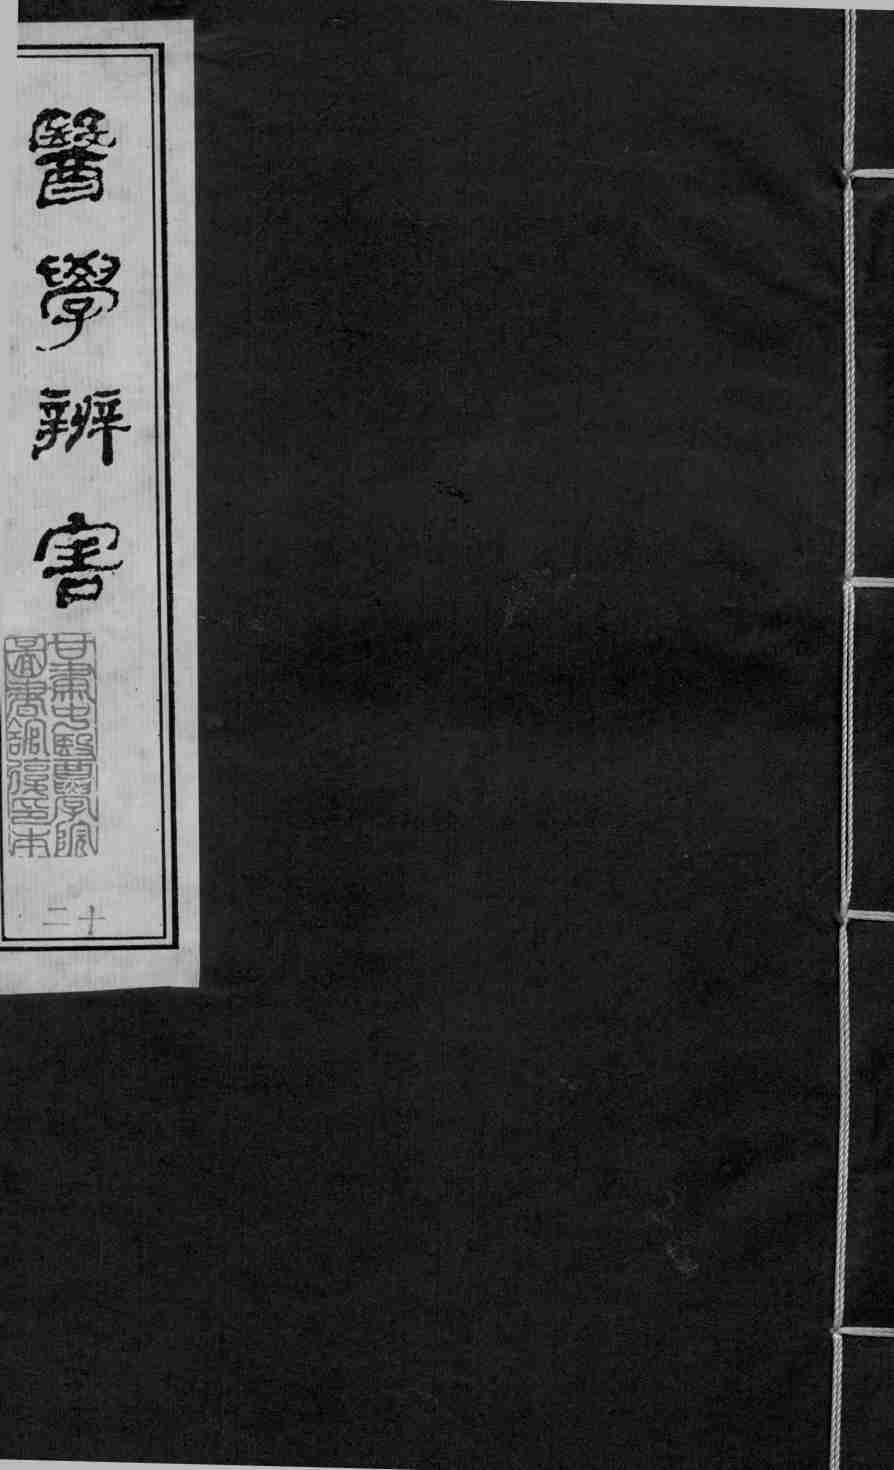 醫學辨害
甘肅中醫學院
圖書館復印本
十二